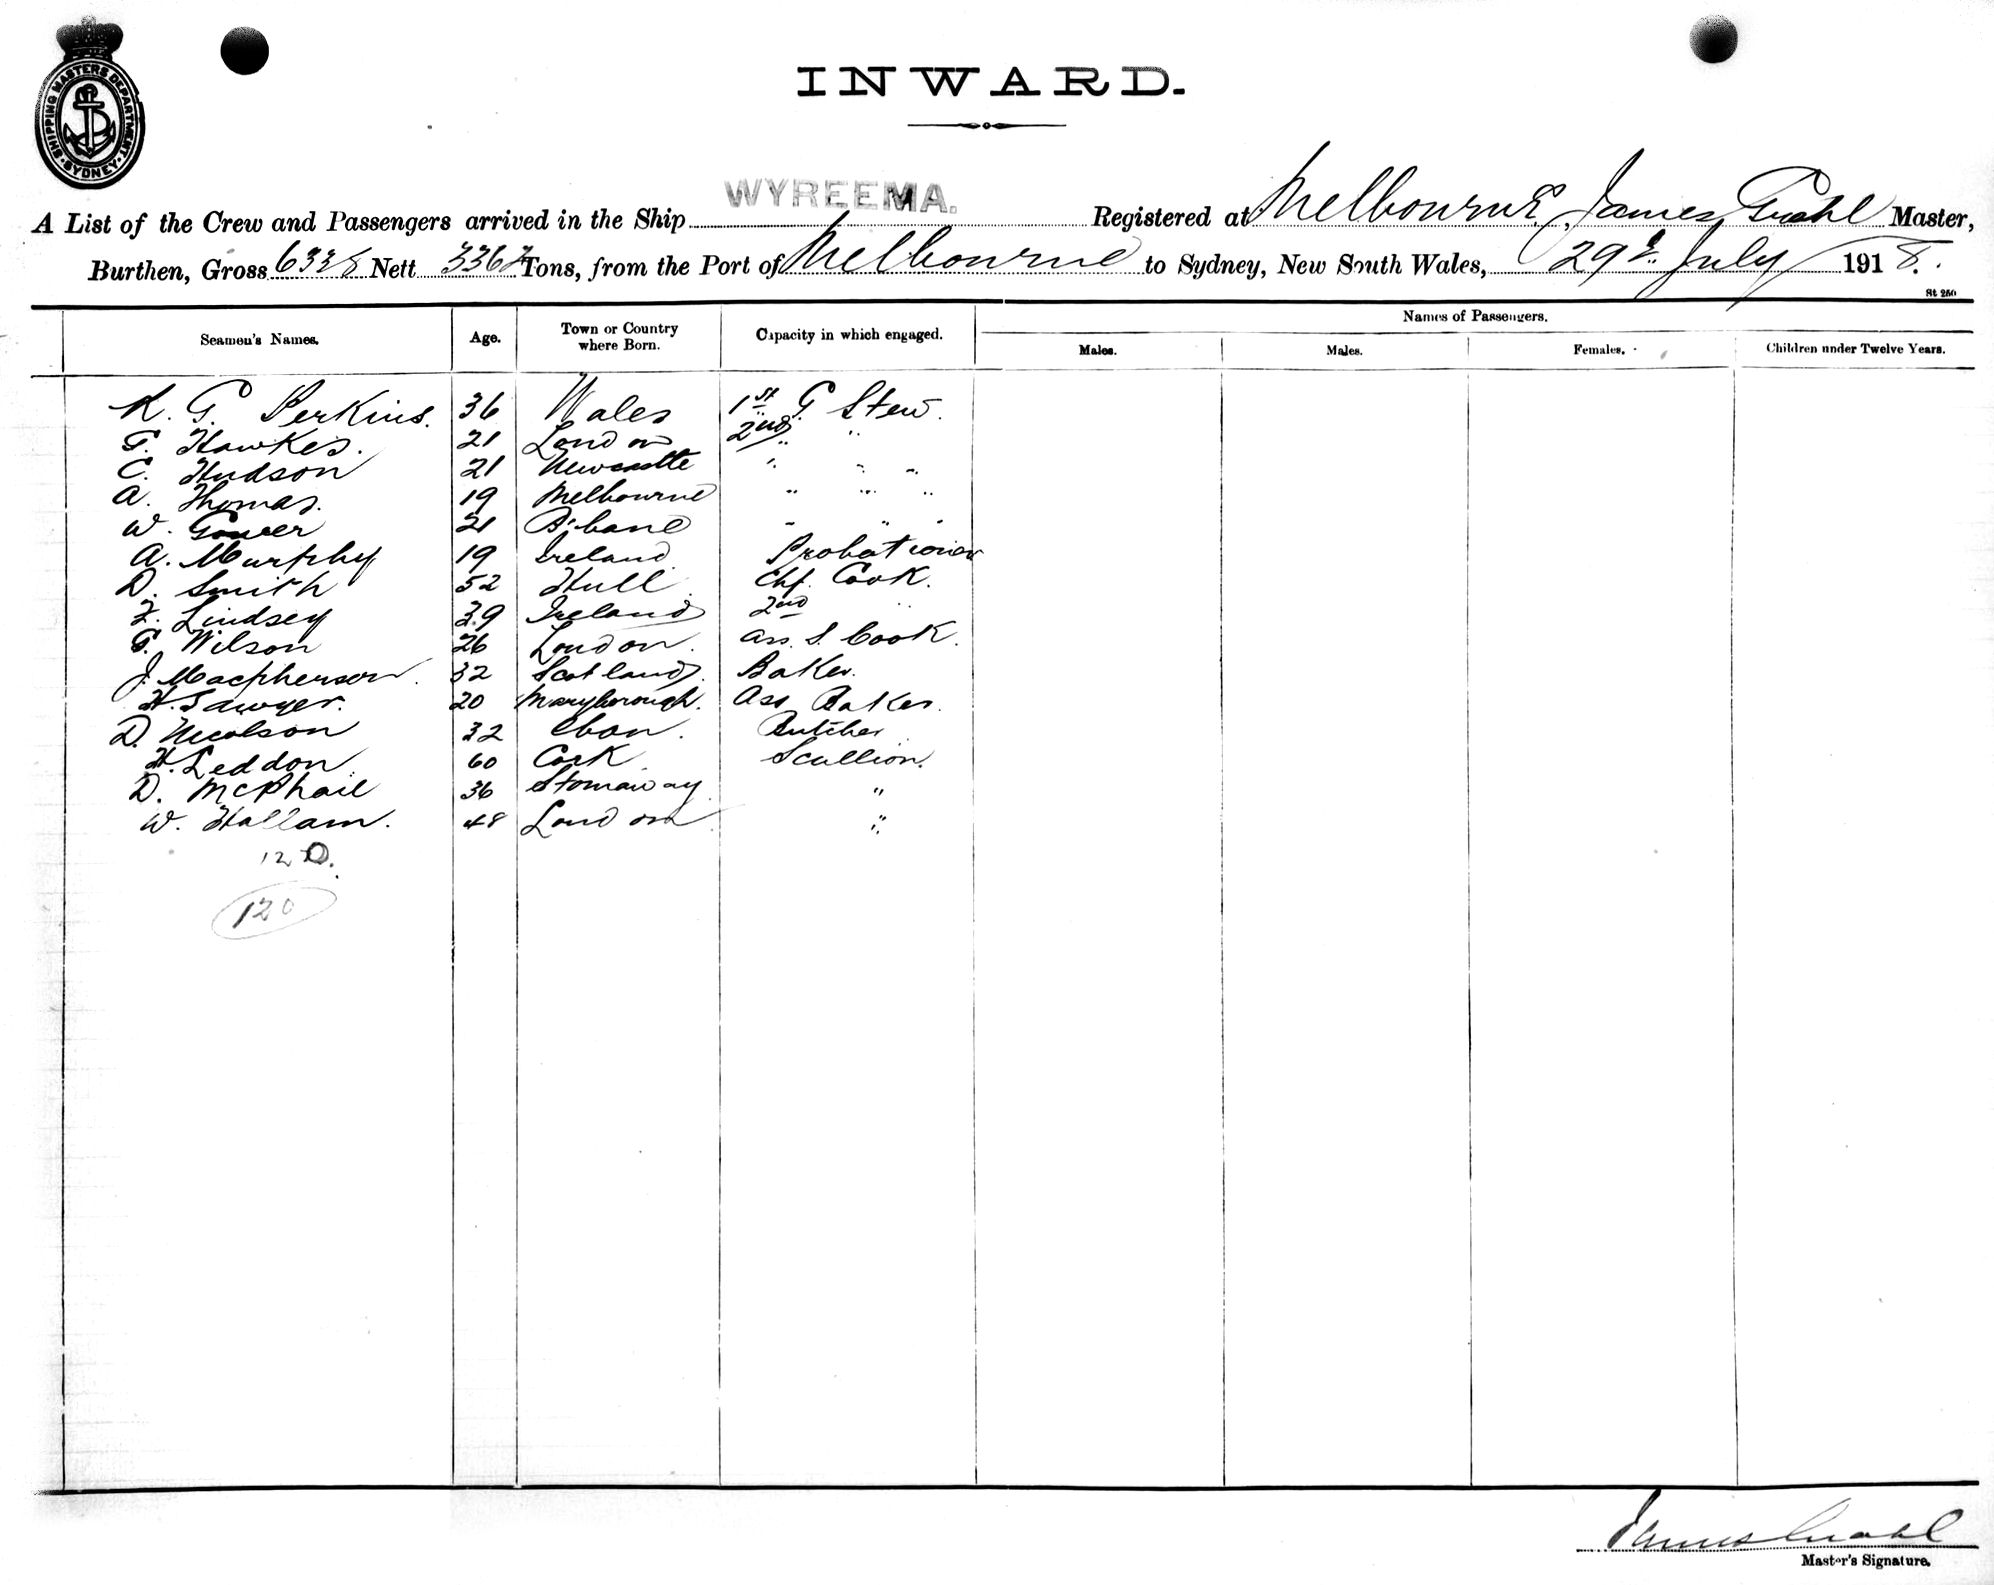 SHIPPING MASTERS DEPARTMENT · SYDNEY ·
INWARD.
A List of the Crew and Passengers arrived in the Ship WYREEMA. Registered at Melbourne, James Master,
Burthen, Gross 6338 Nett 3362 Tons, from the Port of Melbourne to Sydney, New South Wales, 29th July 1918.
St 250
Seamen's Names. Age. Town or Country where Born. Capacity in which engaged. Names of Passengers.
Males. Males. Females. Children under Twelve Years.
K. G. Perkins. 36 Wales 1st G Stew.
G. Hawkes. 21 London 2nd " "
C. Hudson 21 Newcastle " " "
A. Thomas. 19 Melbourne " " "
W. Gower 21 B'bane " " "
A. Murphy 19 Ireland Probationer
D. Smith 52 Hull Chf. Cook.
F. Lindsey 39 Ireland 2nd "
G. Wilson 26 London. Ass. S. Cook.
J. Macpherson. 32 Scotland. Baker
H. Sawyer. 20 Maryborough. Ass Baker.
D. Nicolson 32 Butcher
H. Leddon 60 Cork Scullion.
D. McPhail 36 Stornaway "
W. Hallam. 48 London "
120.
120
James
Master's Signature.